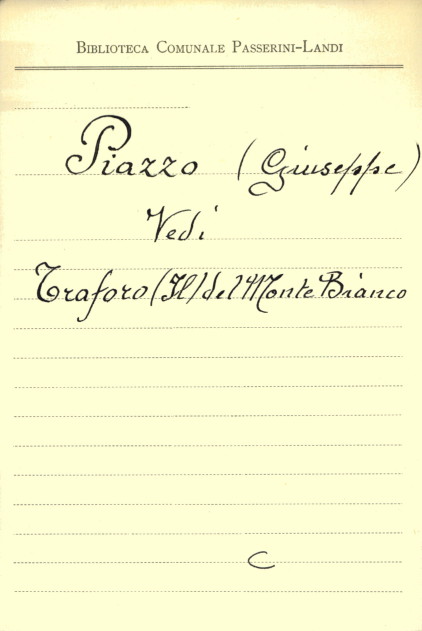 Biblioteca Comunale Passerini-Landi
Piazzo (Giuseppe)
Vedi
Traforo (Il) del Monte Bianco
C